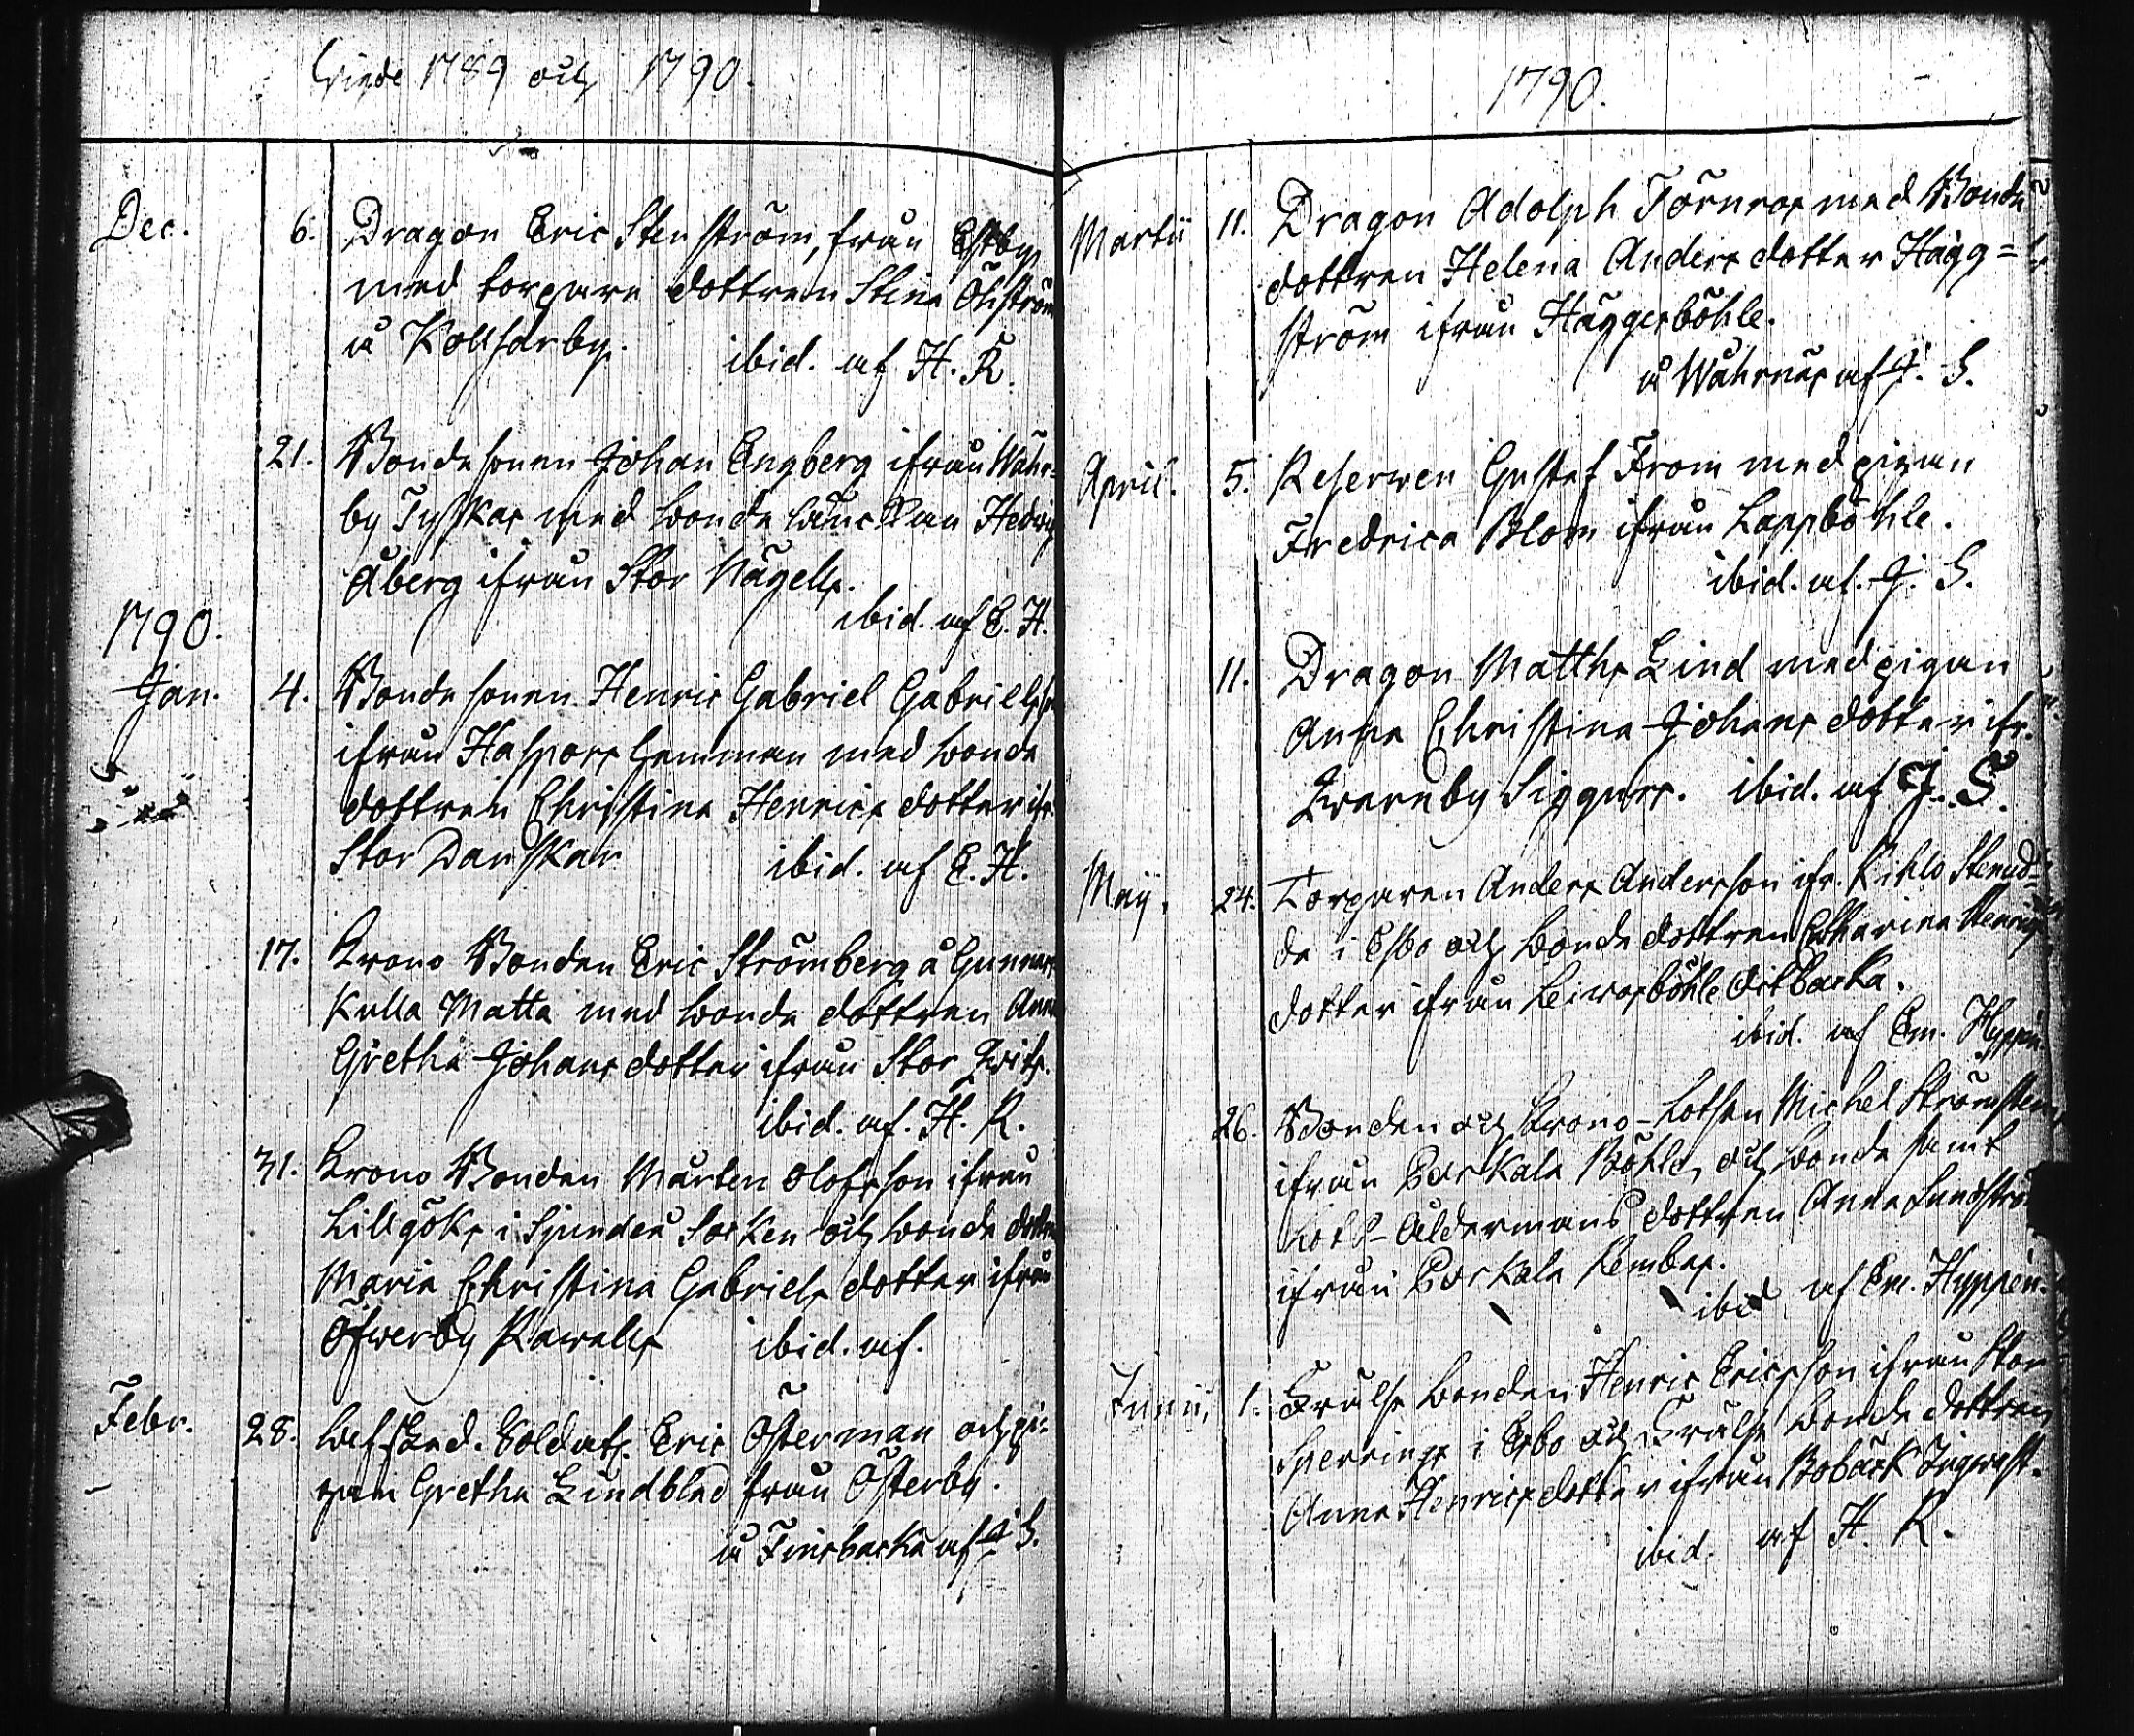 Wigde 1789 och 1790.
Dec. 6. Dragon Eric Stenström, från Estby
med torpare dottren Stina Öhström
å Kollsarby. ibid. af H. R.
21. Bonde sonen Johan Engberg ifrån Wåhr-
by Tyskas med bonde Hedvig
Åberg ifrån Stor Nägels.
ibid. af E. H.
1790.
Jan. 4. Bonde sonen Henric Gabriel
ifrån Haspors hemman med bonde
dottren Christina Henrics dotter ifr.
Stor Danskar ibid. af E. H.
17. Krono Bonden Eric Strömberg å Gunnars
Kulla Matta med bonde dottren Anna
Gretha Johans dotter ifrån Stor Kvits.
ibid. af. H. R.
31. Krono Bonden Mårten Olofsson ifrån
Lillgöks i Sjundeå Socken och bonde dottren
Maria Christina Gabriels dotter ifrån
Öfwerby Rawals ibid. af.
Febr. 28. Soldat. Eric Österman och pi-
gan Gretha Lindblad från Österby.
å Finsbacka af J. S.
1790.
Martii 11. Dragon Adolph Törnros med Bonde
dottren Helena Anders dotter Hägg=
ström ifrån Häggesböhle.
å Wåhrnäs af J. S.
April. 5. Reserven Gustaf From med pigan
Fredrica Blom ifrån Lappböhle.
ibid. af. J. S.
11. Dragon Matths Lind med pigan
Anna Christina Johans dotter ifr.
Kvarnby Siggurs. ibid. af J. S.
Maij. 24. Torparen Anders Andersson ifr. Kihlo Stensd-
da i Esbo och bonde dottren Catharina Henrics
dotter ifrån Leivosböhle Östbacka.
ibid. af Em. Hyppén.
26. Bonden och Krono-Lotsen Michel Strömsten,
ifrån Porkala Böhle, och bonde samt
Lots-Åldermans dottren Anna Lundström
ifrån Porkala Rembes.
ibid. af Em. Hyppén.
Junii, 1. Frälse bonden Henric Ericsson ifrån Stor
Sperrings i Esbo och Frälse bonde dottren
Anna Henrics dotter ifrån Bobäck Ingwast.
ibid. af H. R.